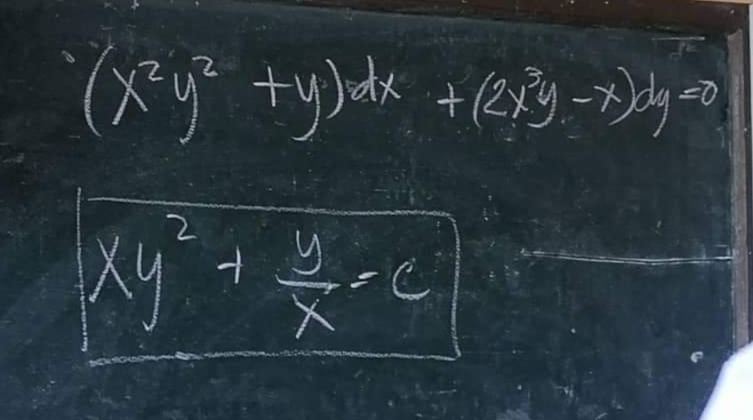 (x²y² + y)dx + (2x³y - x)dy = 0
xy² + y/x = c